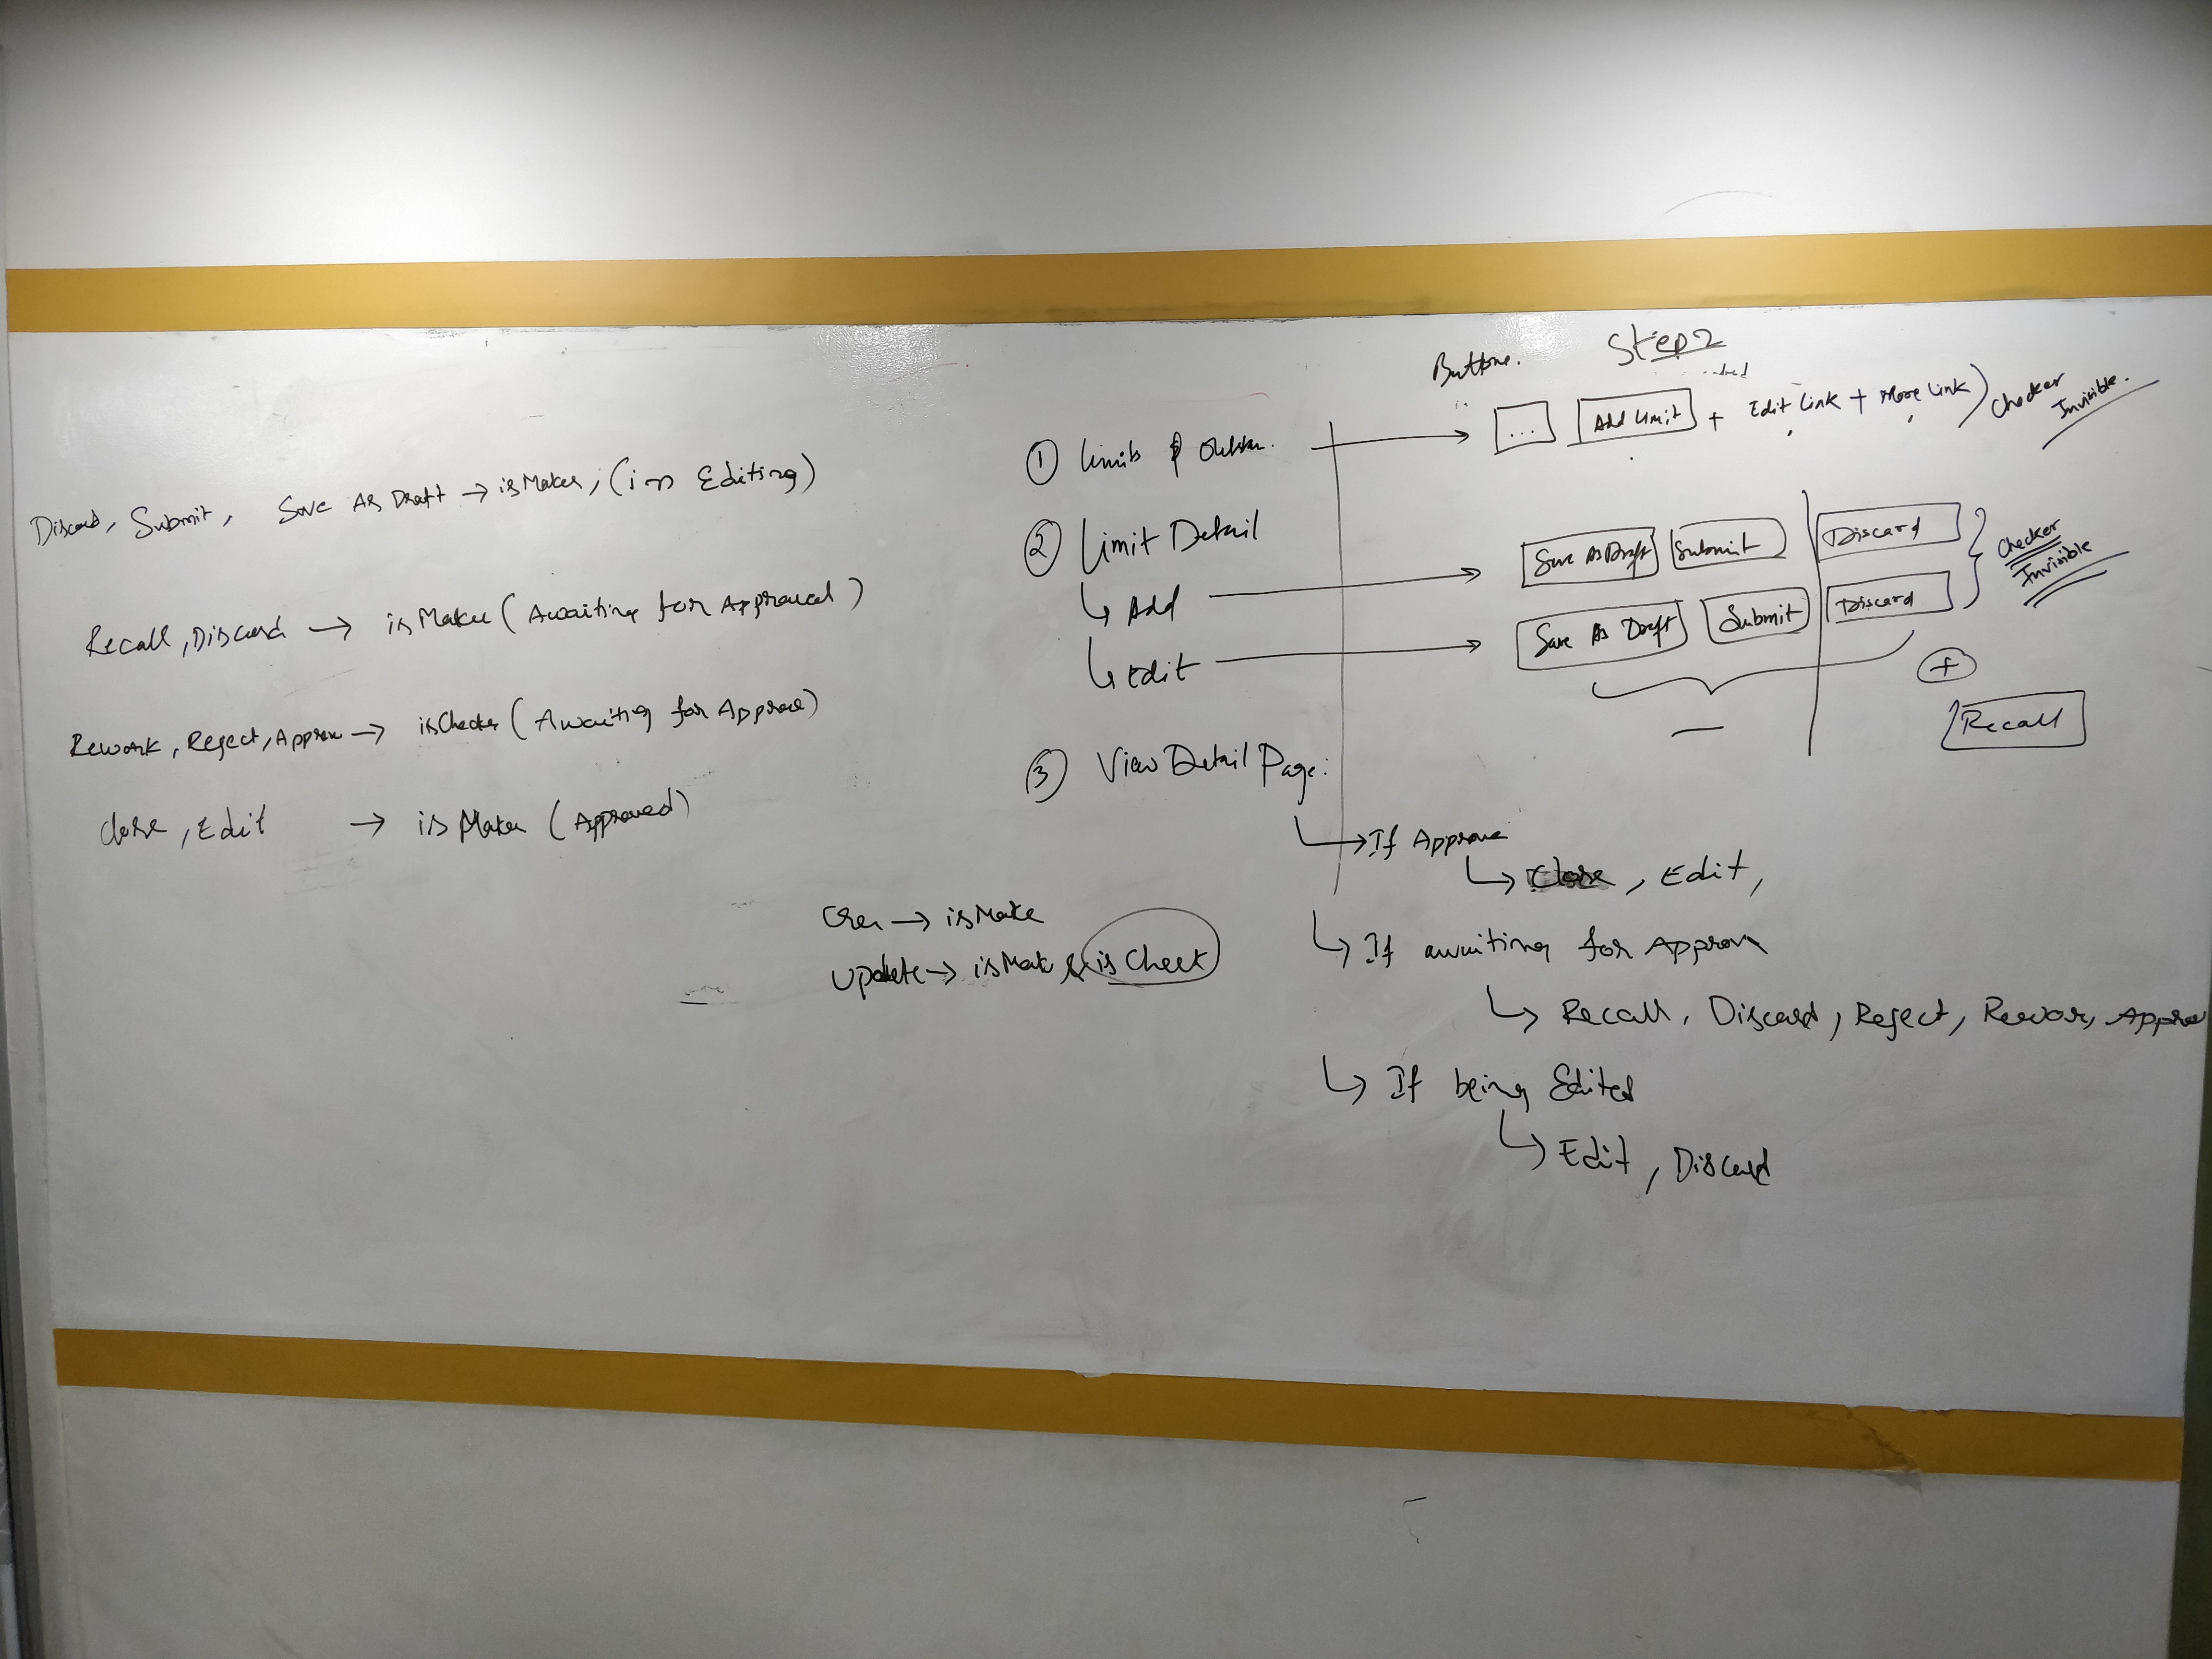 Discard, Submit, Save As Draft → isMaker, (in Editing)
Recall, Discard → isMaker (Awaiting for Approval)
Rework, Reject, Approv → isChecker (Awaiting for Approve)
Close, Edit → isMaker (Approved)
Crea → isMake
Update → isMak & is Check
Buttons. Step 2
① Limits & → ... Add Limit + Edit Link + More Link) Checker Invisible.
② Limit Detail
↳ Add → Save As Draft Submit Discard
↳ Edit → Save As Draft Submit Discard
Checker
Invisible
+
Recall
③ View Detail Page:
↳ If Approve
↳ Close, Edit,
↳ If awaiting for Approv
↳ Recall, Discard, Reject, Rewor, Approve
↳ If being Edited
↳ Edit, Discard